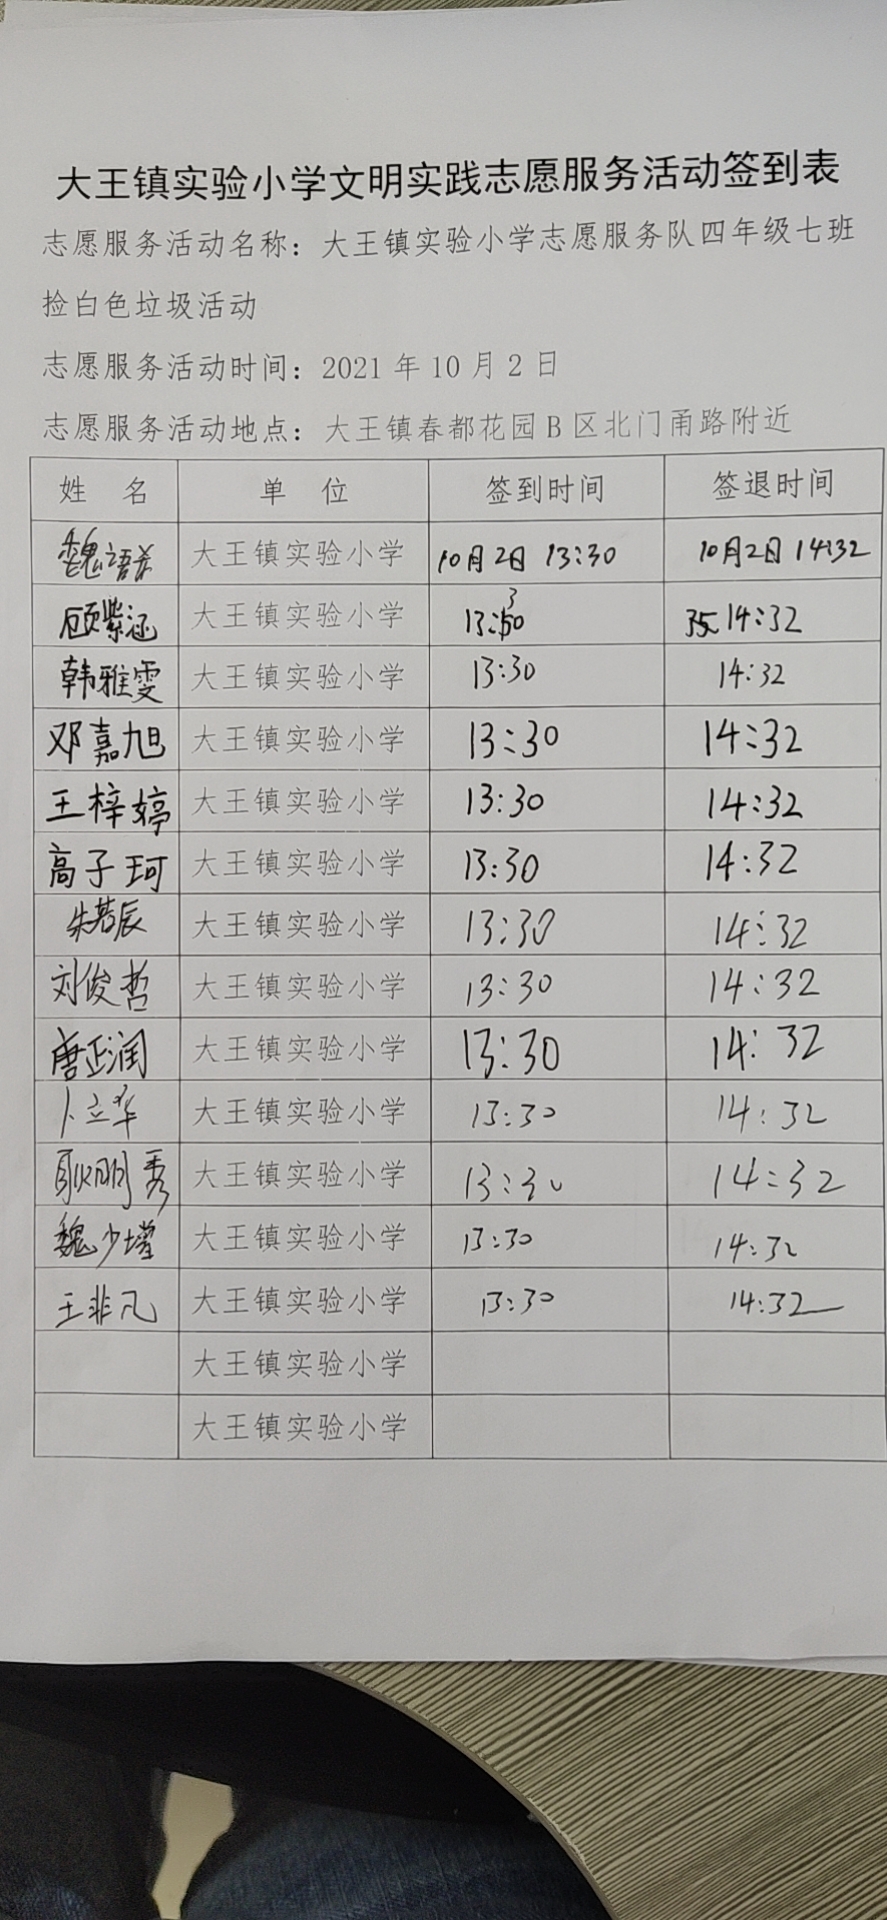 大王镇实验小学文明实践志愿服务活动签到表
志愿服务活动名称：大王镇实验小学志愿服务队四年级七班
捡白色垃圾活动
志愿服务活动时间：2021年10月2日
志愿服务活动地点：大王镇春都花园B区北门甬路附近
姓 名 单 位 签到时间 签退时间
魏 大王镇实验小学 10月2日 13:30 10月2日 14:32
顾紫涵 大王镇实验小学 13:30 14:32
韩雅雯 大王镇实验小学 13:30 14:32
邓嘉旭 大王镇实验小学 13:30 14:32
王梓婷 大王镇实验小学 13:30 14:32
高子珂 大王镇实验小学 13:30 14:32
朱若辰 大王镇实验小学 13:30 14:32
刘俊哲 大王镇实验小学 13:30 14:32
唐正润 大王镇实验小学 13:30 14:32
卜立华 大王镇实验小学 13:30 14:32
耿明秀 大王镇实验小学 13:30 14:32
魏少 大王镇实验小学 13:30 14:32
王非凡 大王镇实验小学 13:30 14:32
大王镇实验小学
大王镇实验小学